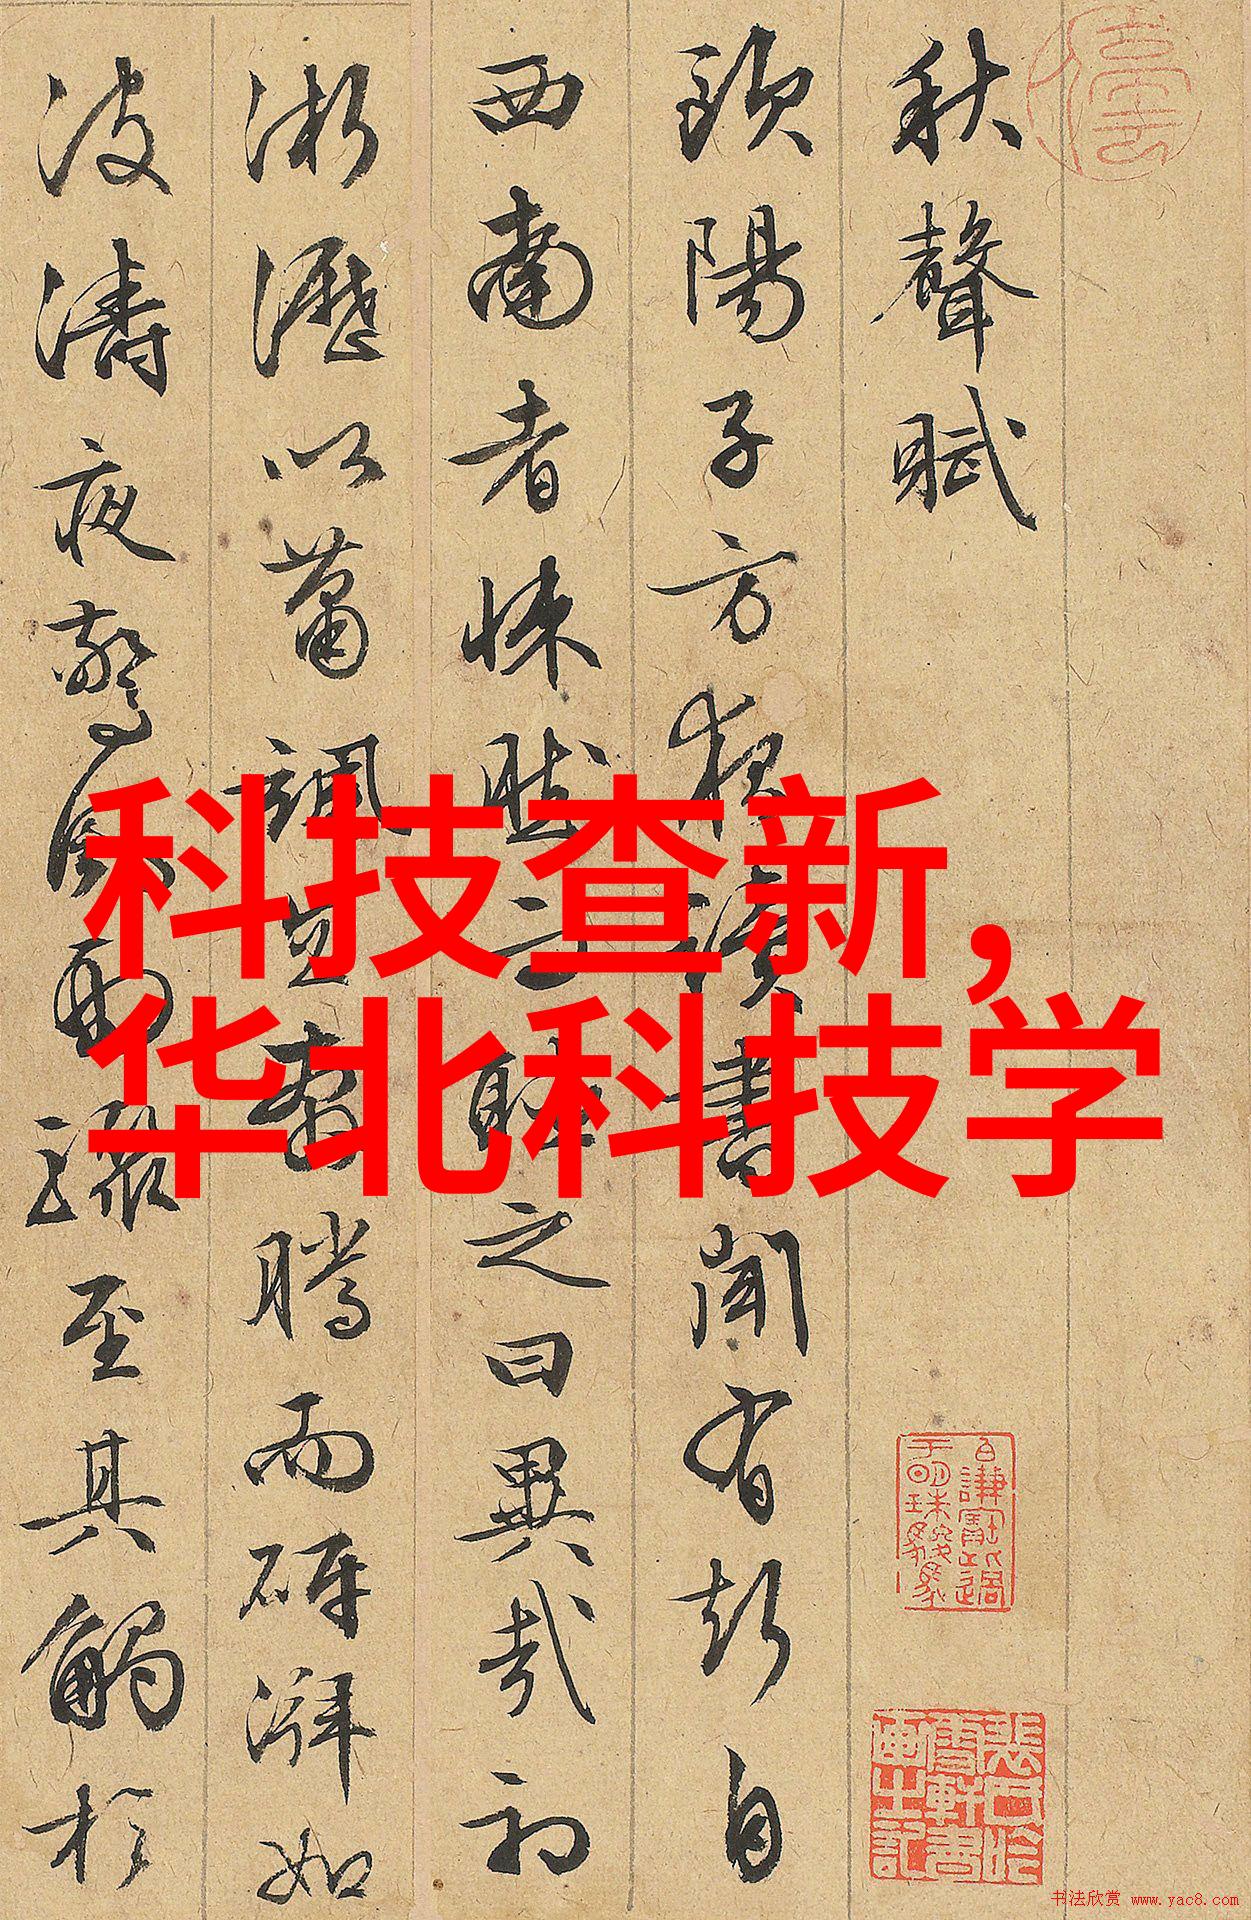 秋聲賦
歐陽子方夜讀書聞有聲自
西南者悚然而聽之曰異哉初
淅瀝以蕭颯忽奔騰而砰湃如
波濤夜驚風雨驟至其觸於
科技查新,
华北科技学
书法欣赏 www.yac8.com